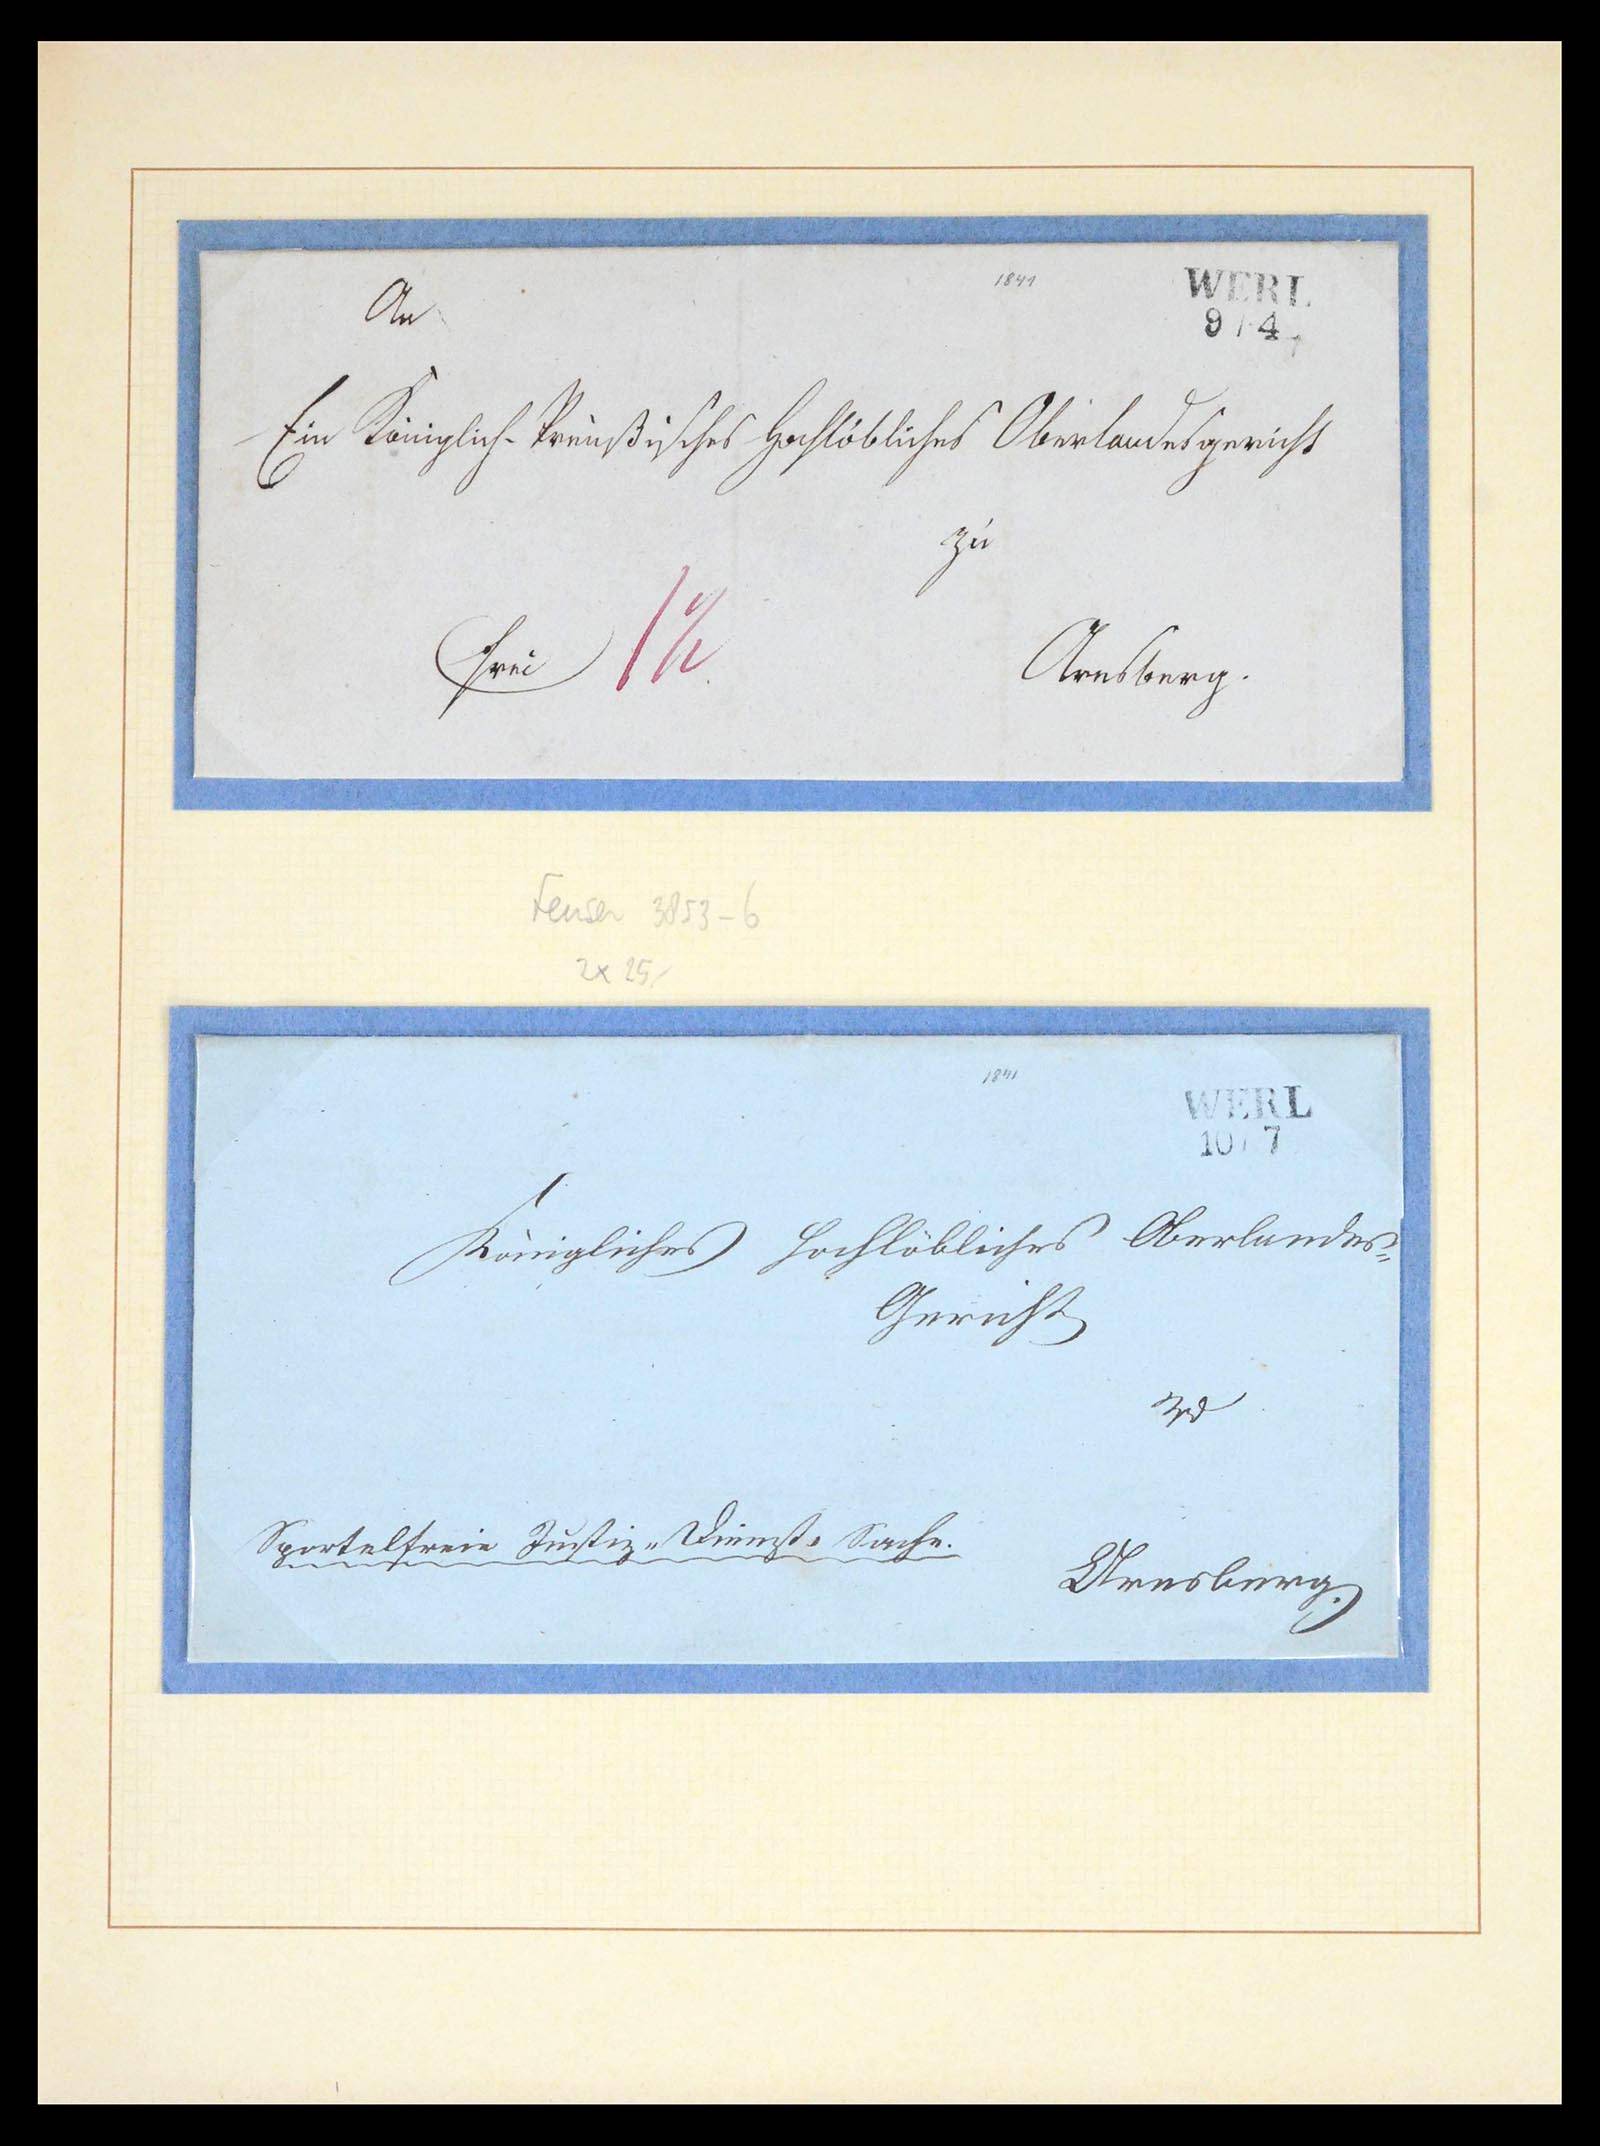 1841
WERL
9 / 4
An
Ein Königlich-Preußisches Hochlöbliches Oberlandesgericht
zu
frei 1½
Arnsberg.
Feuser 3853-6
2x 25,-
1841
WERL
10 / 7
Königliches Hochlöbliches Oberlandes=
Gericht
zu
Sportelfreie Justiz-Dienst-Sache.
Arnsberg.